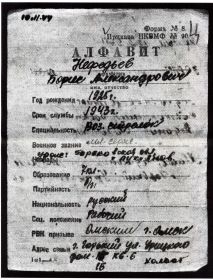 10.11.44
Форма № 8
НКВМФ № 90
АЛФАВИТ
Нефедьев
Борис Александрович
имя, отчество
Год рождения 1925г.
Срок службы 1943г.
Специальность
Военное звание
Образование 7кл.
Партийность б/п
Национальность русский
Соц. положение рабочий
РВК призыва Омским г. Омск
Адрес семьи г. Горький ул. Урицкого
дом 15 кв-6
16 холост